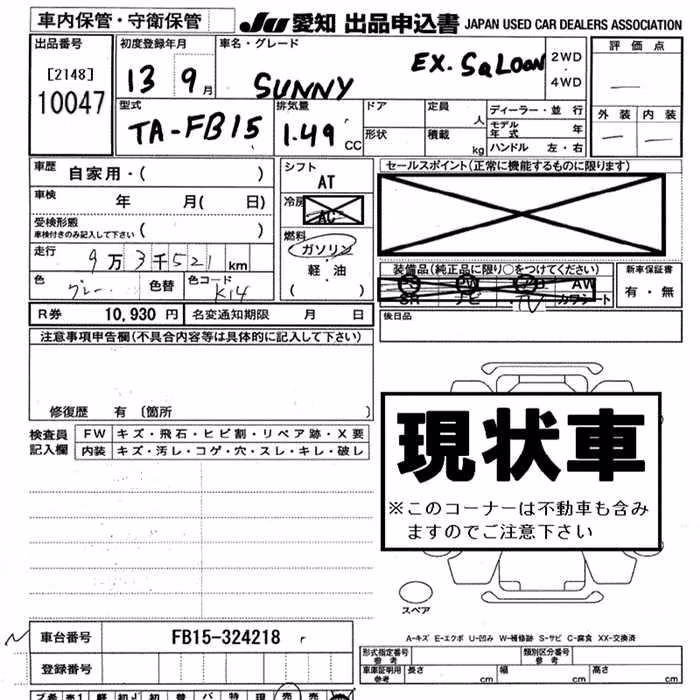 車内保管・守衛保管 JU 愛知 出品申込書 JAPAN USED CAR DEALERS ASSOCIATION
出品番号 初度登録年月 車名・グレード 評価点
[2148] 13 9月 SUNNY EX.SALOON 2WD・4WD —
10047 型式 排気量 ドア 定員 人 ディーラー・並行 外装 内装
TA-FB15 1.49 CC 形状 積載 kg モデル年式 年 — —
ハンドル 左・右
車歴 自家用・( ) シフト AT セールスポイント(正常に機能するものに限ります)
車検 年 月( 日) 冷房 AC
受検形態 車検付きのみ記入して下さい ( ) 燃料 ガソリン・軽油 ( )
走行 9万3千521km 装備品(純品に限り○をつけてください) 新車保証書
色 グレー 色替 色コード K14 PS PW AB AW 有・無
SR ナビ・TV カワシート
R券 10,930円 名変通知期限 月 日 後日品
注意事項申告欄(不具合内容等は具体的に記入して下さい)
修復歴 有 〔箇所 〕
検査員記入欄 FW キズ・飛石・ヒビ割・リペア跡・X要
内装 キズ・汚レ・コゲ・穴・スレ・キレ・破レ
現状車
※このコーナーは不動車も含み
ますのでご注意下さい
スペア
A-キズ E-エクボ U-凹み W-補修跡 S-サビ C-腐食 XX-交換済
車台番号 FB15-324218 r
登録番号
形式指定番号 参考 類別区分番号 参考
車庫証明用 参考 長さ cm 幅 cm 高さ cm